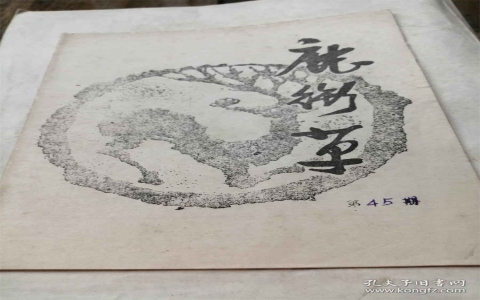 鹿衔草
第 45 期
孔夫子旧书网
www.kongfz.com